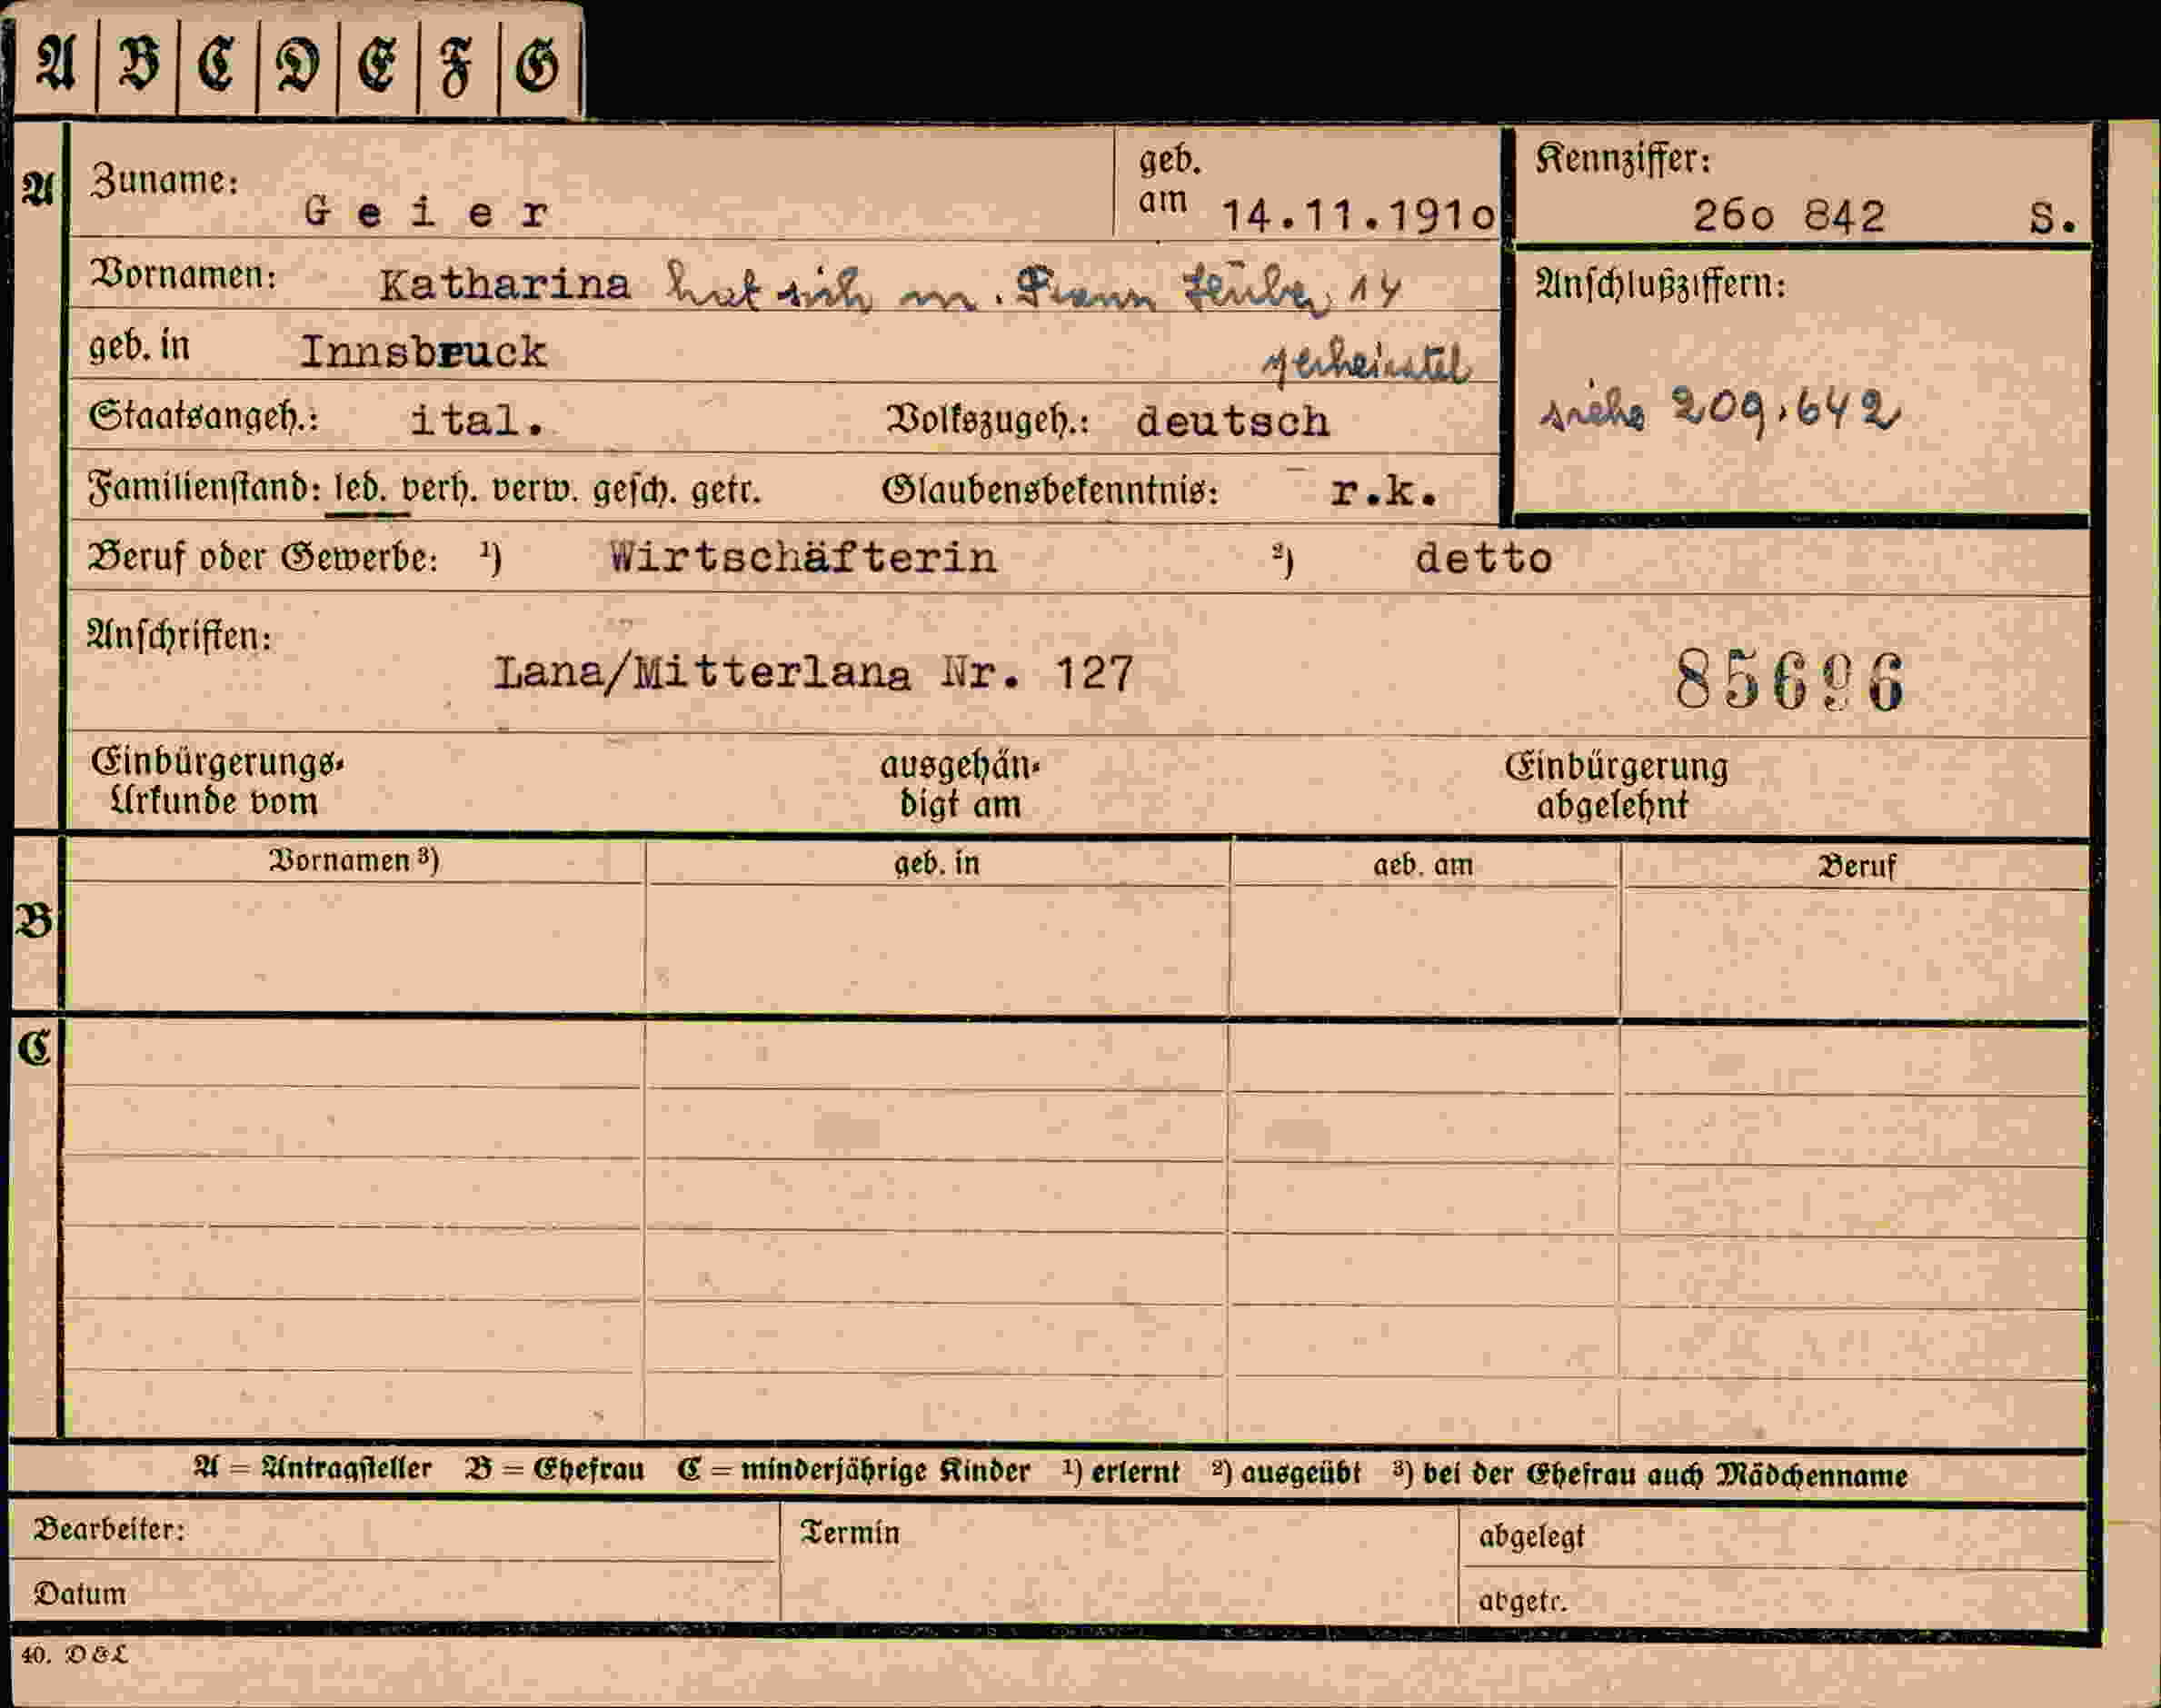 A B C D E F G
A Zuname: Geier geb. am 14.11.1910
Kennziffer: 26o 842 S.
Vornamen: Katharina hat sich m. 14
Anschlußziffern:
geb. in Innsbruck verheiratet
siehe 209.642
Staatsangeh.: ital. Volkszugeh.: deutsch
Familienstand: led. verh. verw. gesch. getr. Glaubensbekenntnis: r.k.
Beruf oder Gewerbe: ¹) Wirtschäfterin ²) detto
Anschriften:
Lana/Mitterlana Nr. 127 85696
Einbürgerungs- ausgehän- Einbürgerung
Urkunde vom digt am abgelehnt
Vornamen ³) geb. in geb. am Beruf
B
C
A = Antragsteller B = Ehefrau C = minderjährige Kinder ¹) erlernt ²) ausgeübt ³) bei der Ehefrau auch Mädchenname
Bearbeiter: Termin abgelegt
Datum abgetr.
40. D&L